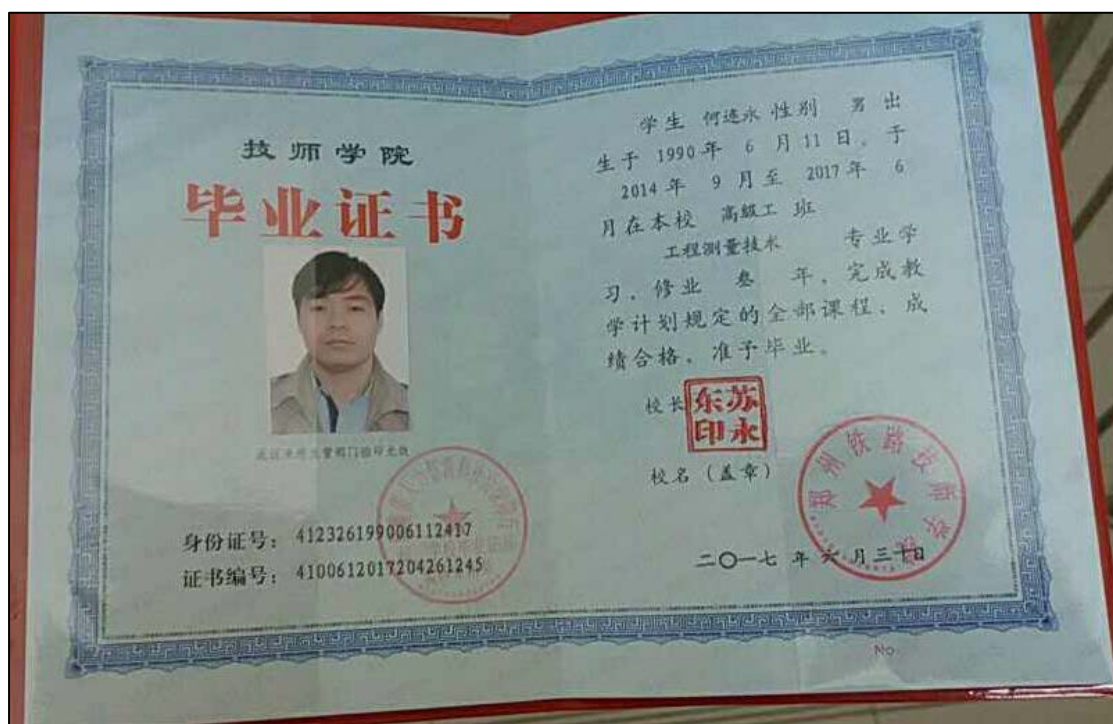 技师学院
毕业证书
身份证号： 412326199006112417
证书编号： 4100612017204261245
学生 何连永 性别 男 出
生于 1990 年 6 月 11 日，于
2014 年 9 月至 2017 年 6
月在本校 高级工 班
工程测量技术 专业学
习，修业 叁 年，完成教
学计划规定的全部课程，成
绩合格，准予毕业。
校长 苏永东印
校名（盖章）
郑州铁路技师学院
二〇一七 年 六 月 三十日
No